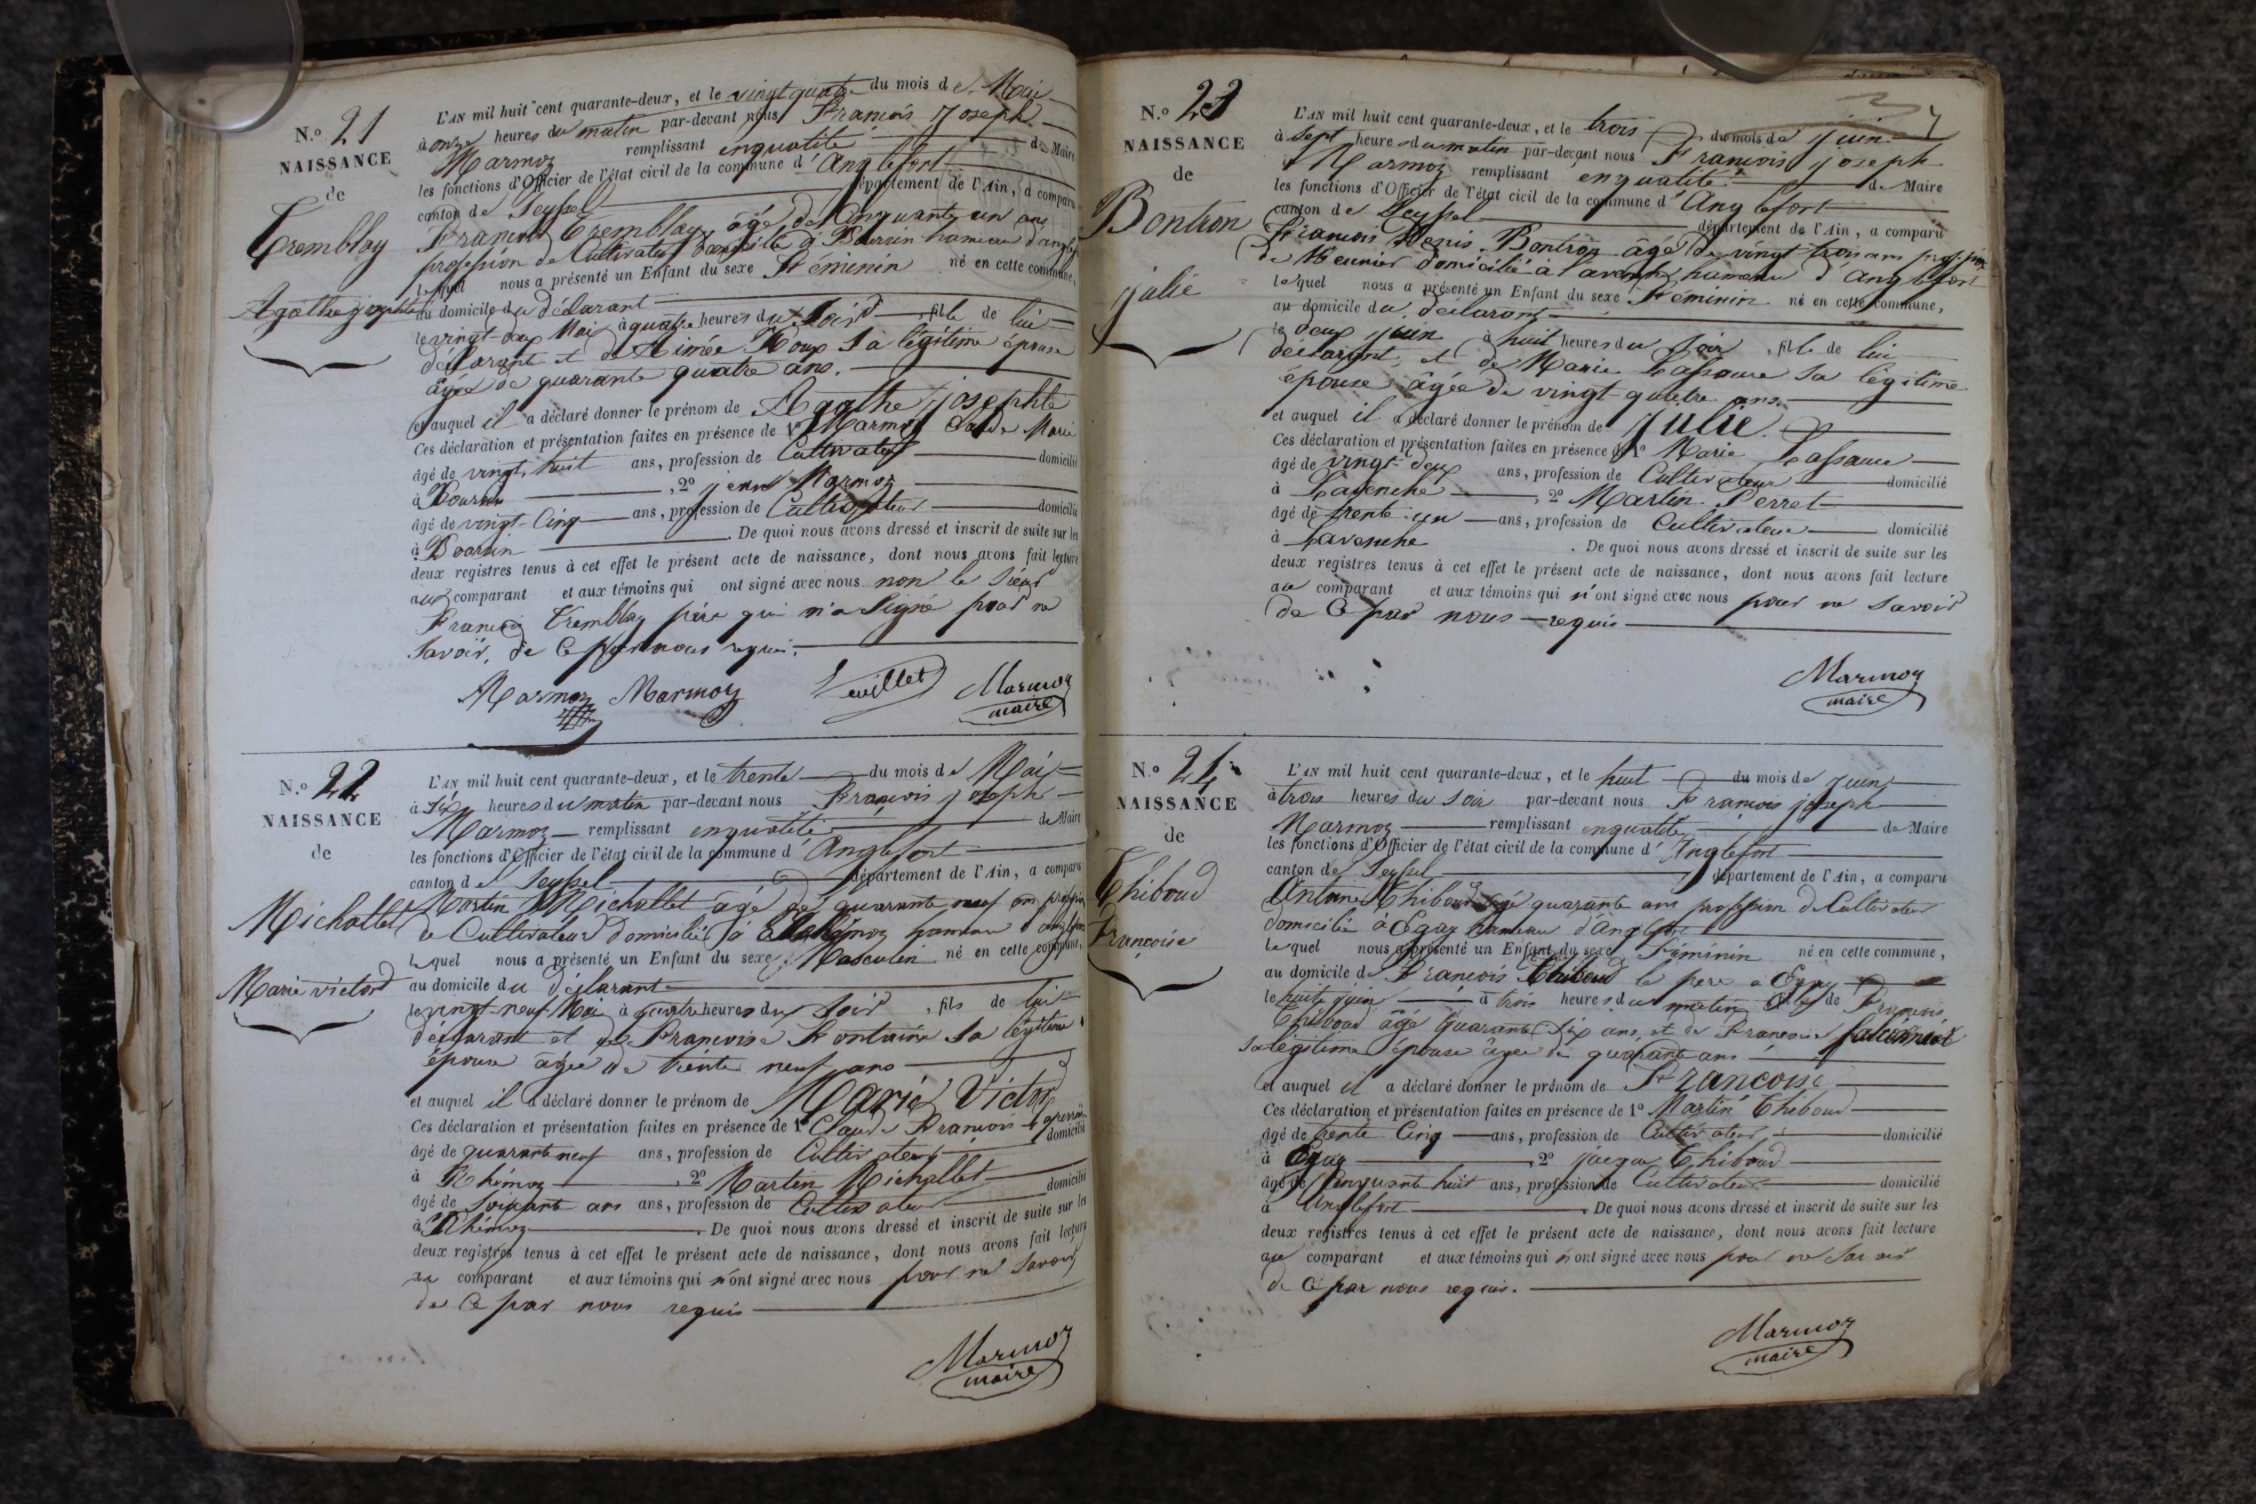 N.o 21
NAISSANCE
de
Tremblay
Agathe josephte
L'AN mil huit cent quarante-deux, et le vingt quatre du mois de Mai
à onze heures du matin par-devant nous François Joseph
Marmoz remplissant en qualité de Maire
les fonctions d'Officier de l'état civil de la commune d'Anglefort
canton de Seyssel département de l'Ain, a comparu
François Tremblay âgé de Cinquante un ans
profession de Cultivateur domicilié à Boursin hameau d'anglefort
lequel nous a présenté un Enfant du sexe Féminin né en cette commune,
au domicile du déclarant
le vingt-deux Mai à quatre heures du Soir, fille de lui
déclarant et de Aimée Roux Sa légitime épouse
âgée de quarante quatre ans.
et auquel il a déclaré donner le prénom de Agathe josephte
Ces déclaration et présentation faites en présence de 1o Marmoz Claude Marie
âgé de vingt huit ans, profession de Cultivateur domicilié
à Boursin, 2o Marmoz
âgé de vingt-Cinq ans, profession de Cultivateur domicilié
à Boursin. De quoi nous avons dressé et inscrit de suite sur les
deux registres tenus à cet effet le présent acte de naissance, dont nous avons fait lecture
au comparant et aux témoins qui ont signé avec nous non le Sieur
François Tremblay père qui n'a Signé pour ne
Savoir, de Ce par nous requis.
Marmoz Marmoz Marmoz
maire
N.o 22
NAISSANCE
de
Michallet
Marie victor
L'AN mil huit cent quarante-deux, et le trente du mois de Mai
à Six heures du matin par-devant nous François joseph
Marmoz remplissant en qualité de Maire
les fonctions d'Officier de l'état civil de la commune d'Anglefort
canton de Seyssel département de l'Ain, a comparu
Martin Michallet âgé de quarante neuf ans profession
de Cultivateur domicilié à Rhémoz hameau d'anglefort
lequel nous a présenté un Enfant du sexe Masculin né en cette commune,
au domicile du déclarant
le vingt-neuf Mai à quatre heures du Soir, fils de lui
déclarant et de Françoise Fontaine Sa légitime
épouse âgée de trente neuf ans
et auquel il a déclaré donner le prénom de Marie Victor
Ces déclaration et présentation faites en présence de 1o Claude François
âgé de quarante neuf ans, profession de Cultivateur domicilié
à Rhémoz, 2o Martin Michallet
âgé de Soixante ans ans, profession de Cultivateur domicilié
à Rhémoz. De quoi nous avons dressé et inscrit de suite sur les
deux registres tenus à cet effet le présent acte de naissance, dont nous avons fait lecture
au comparant et aux témoins qui n'ont signé avec nous pour ne Savoir
de Ce par nous requis
Marmoz
maire
7
N.o 23
NAISSANCE
de
Bontron
julie
L'AN mil huit cent quarante-deux, et le trois du mois de juin
à Sept heures du matin par-devant nous François joseph
Marmoz remplissant en qualité de Maire
les fonctions d'Officier de l'état civil de la commune d'Anglefort
canton de Seyssel département de l'Ain, a comparu
François Denis Bontron âgé de vingt trois ans
de Meunier domicilié à Lavenche hameau d'Anglefort
lequel nous a présenté un Enfant du sexe Féminin né en cette commune,
au domicile du déclarant
le deux juin à huit heures du Soir, fille de lui
déclarant, et de Marie Lassause Sa légitime
épouse âgée de vingt-quatre ans.
et auquel il a déclaré donner le prénom de Julie.
Ces déclaration et présentation faites en présence de 1o Marie Lassause
âgé de vingt-deux ans, profession de Cultivateur domicilié
à Lavenche, 2o Martin Perret
âgé de trente-un ans, profession de Cultivateur domicilié
à Lavenche. De quoi nous avons dressé et inscrit de suite sur les
deux registres tenus à cet effet le présent acte de naissance, dont nous avons fait lecture
au comparant et aux témoins qui n'ont signé avec nous pour ne Savoir
de Ce par nous requis
Marmoz
maire
N.o 24
NAISSANCE
de
Thiboud
Françoise
L'AN mil huit cent quarante-deux, et le huit du mois de juin
à trois heures du Soir par-devant nous François joseph
Marmoz remplissant en qualité de Maire
les fonctions d'Officier de l'état civil de la commune d'Anglefort
canton de Seyssel département de l'Ain, a comparu
Antoine Thiboud âgé quarante ans profession de Cultivateur
domicilié à Egay hameau d'Anglefort
lequel nous a présenté un Enfant du sexe Féminin né en cette commune,
au domicile de François Thiboud le père a Egay
le huit juin à trois heures du matin fille de François
Thiboud âgé quarante Six ans, et de Françoise
Sa légitime épouse âgée de quarante ans
et auquel il a déclaré donner le prénom de Françoise
Ces déclaration et présentation faites en présence de 1o Martin Thiboud
âgé de trente Cinq ans, profession de Cultivateur domicilié
à Egay, 2o Thiboud
âgé de Cinquante huit ans, profession de Cultivateur domicilié
à Anglefort. De quoi nous avons dressé et inscrit de suite sur les
deux registres tenus à cet effet le présent acte de naissance, dont nous avons fait lecture
au comparant et aux témoins qui n'ont signé avec nous pour ne Savoir
de Ce par nous requis.
Marmoz
maire